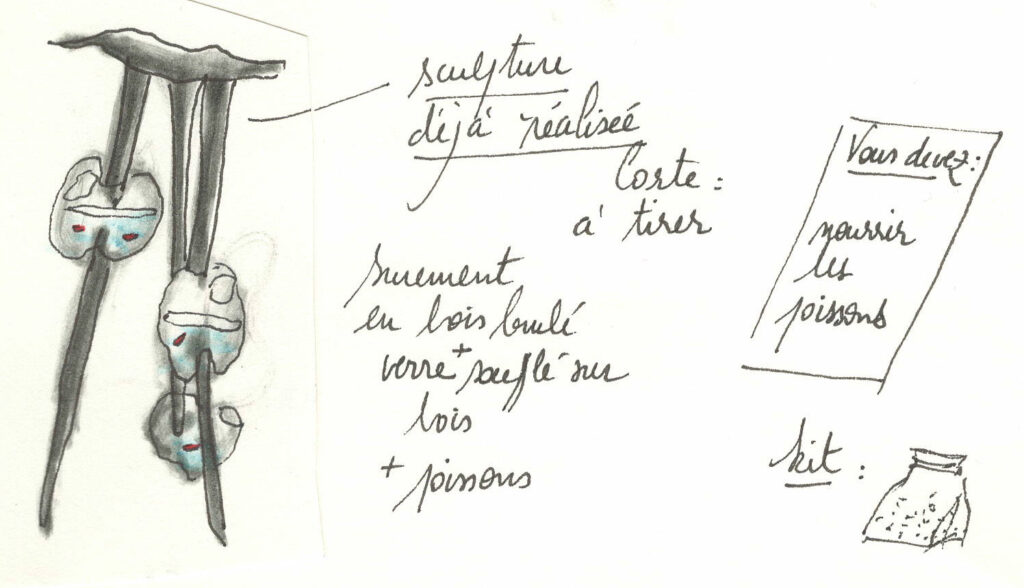 sculpture
déjà réaliseé
Carte :
à tirer
Vous devez :
nourrir
les
poissons
surement
en bois brulé
verre + souflé sur
bois
+ poissons
kit :